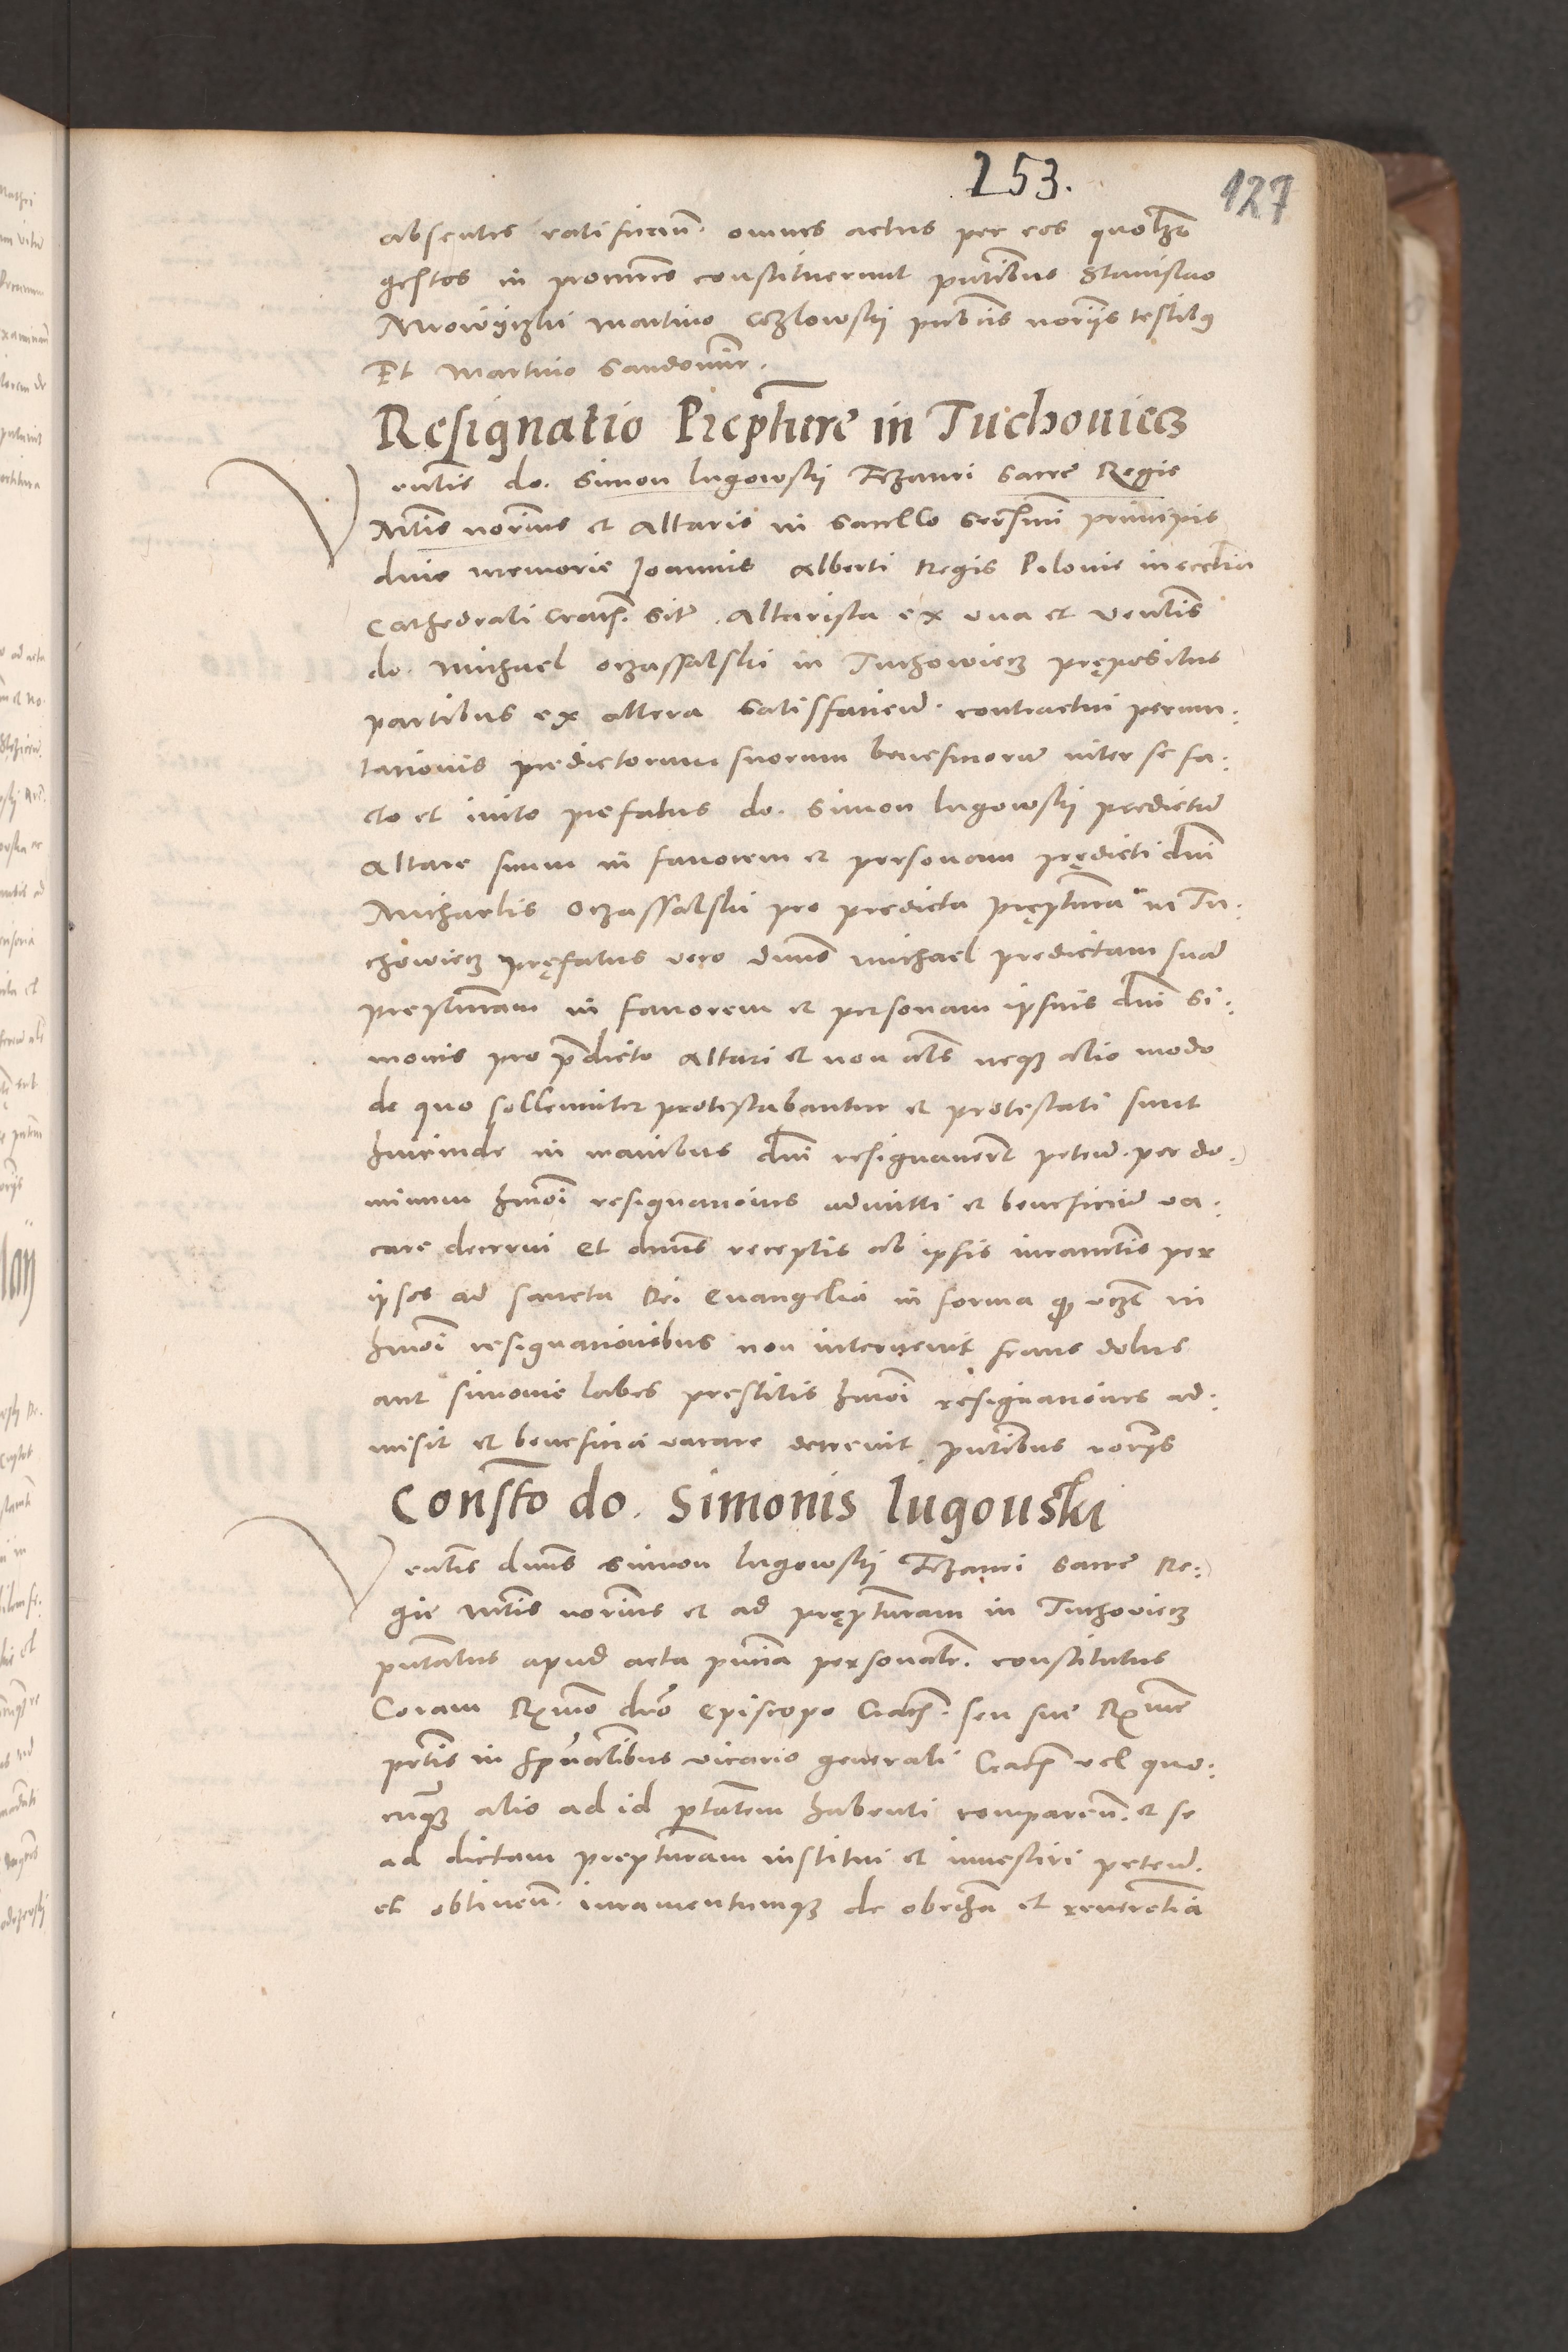 253.
127
absentes ratifican̄. omnes actus per eos quol̄zt
gestos in promiss̄ constituerunt pn̄tibus Stanislao
Mrowijczki Martino Cozlowskij pub̄cis nor̄ijs testibꝫ
Et Martino Sandomir̄.
Resignatio Prep̄ture in Tuchouiecz
Ven̄lis do. Simon lugowskij Thzauri Sacre Regie
Mt̄is nor̄ius et Altaris in Sacello Ser̄simi principis
diue memorie Joannis Alberti Regis Polonie in eccl̄ia
Cathedrali Crac̄n̄. Site Altarista ex vna et Ven̄lis
do. Michael oczassalski in Tuchowiecz prępositus
partibus ex altera Satisfacien̄. contractui permu:
tationis predictorum suorum beneficiorū inter se fa:
cto et inito prefatus do. Simon lugowskij predictū
Altare suum in fauorem et personam prędicti dn̄i
Michaelis Oczassalski pro predicta pręp̄tura in Tu:
chowiecz pręfatus vero dn̄us Michael predictam suā
prep̄turam in fauorem et personam ipsius dn̄i Si:
monis pro p̄dicto Altari et non al̄s neqꝫ alio modo
de quo sollemniter protestabantur et protestati sunt
hincinde in manibus dn̄i resignauer̄t peten̄. per do:
minum hm̄oi resignationes admitti et beneficiū va:
care decerni Et dn̄us receptis ab ipsis iuramen̄tis per
ipsos ad sancta Dei Euangelia in forma qꝫ vz̄t in
hm̄oi resignationibus non interuenit fraus dolus
aut simonie labes prestitis hm̄oi resignationes ad:
misit et beneficia vacare decreuit pn̄tibus nor̄ijs
Const̄o do. Simonis lugouski
Ven̄lis dn̄us Simon lugowskij Thzauri Sacre Re:
gie Mt̄is nor̄ius et ad pręp̄turam in Tuchoviecz
pn̄tatus apud acta pn̄cia personalr̄. constitutus
Coram R̄xmo dn̄o Episcopo Crac̄n̄. seu sue R̄xme
p̄tis in sp̄ualibus vicario generali Crac̄n̄ vel quo:
cunqꝫ alio ad id p̄tatem habenti comparen̄. et se
ad dictam prep̄turam institui et inuestiri peten̄.
et obtinen̄. iuramentumqꝫ de obedn̄a et reuerētia